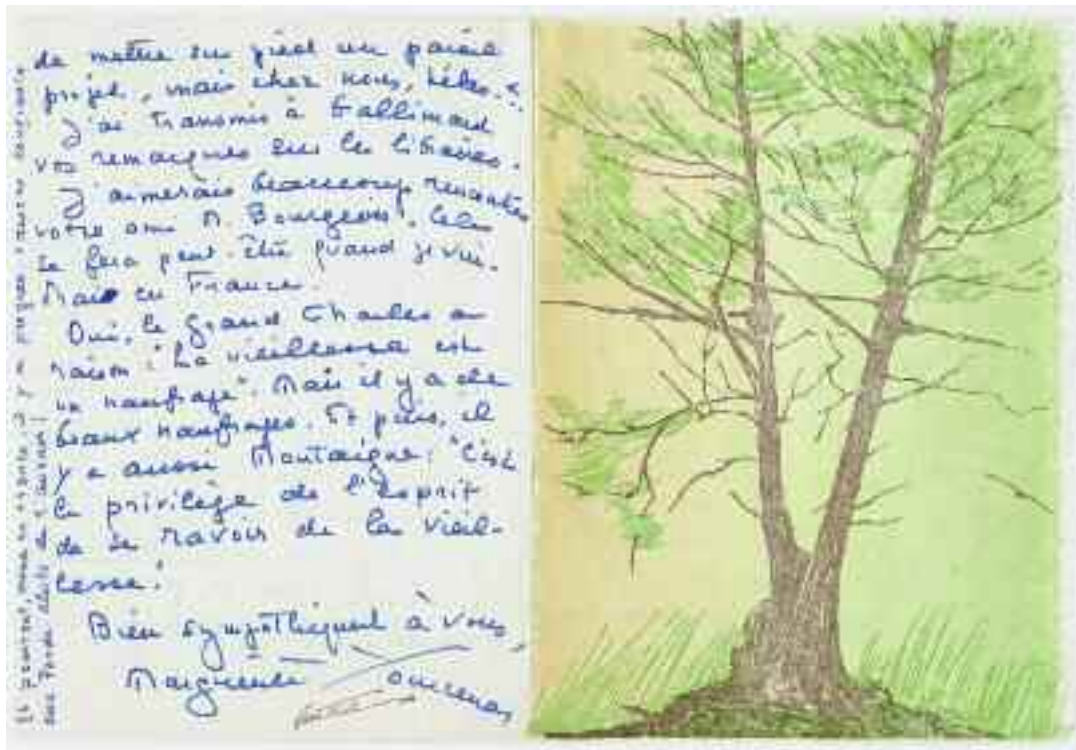 de mettre sur pied un pareil
projet, mais chez nous, hélas..!
J'ai transmis à Gallimard
vos remarques sur les libraires.
J'aimerais beaucoup rencontrer
votre ami M. Bourgeois. Cela
se fera peut-être quand je vien-
drai en France.
Oui, le grand Charles a
raison : "La vieillesse est
un naufrage". Mais il y a de
beaux naufrages. Et puis, il
y a aussi Montaigne: "C'est
le privilège de l'esprit
de se ravoir de la vieil-
lesse."
Bien sympathiquement à vous,
Marguerite Yourcenar